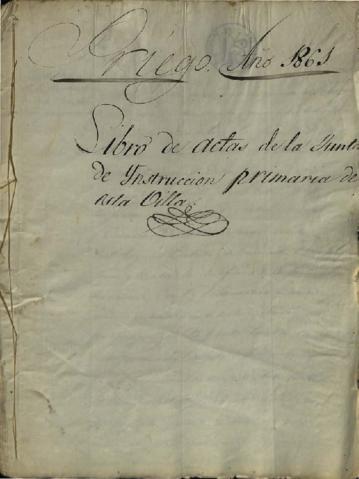 Priego. Año 1861
Libro de actas de la Junta
de Ynstruccion primaria de
esta Villa